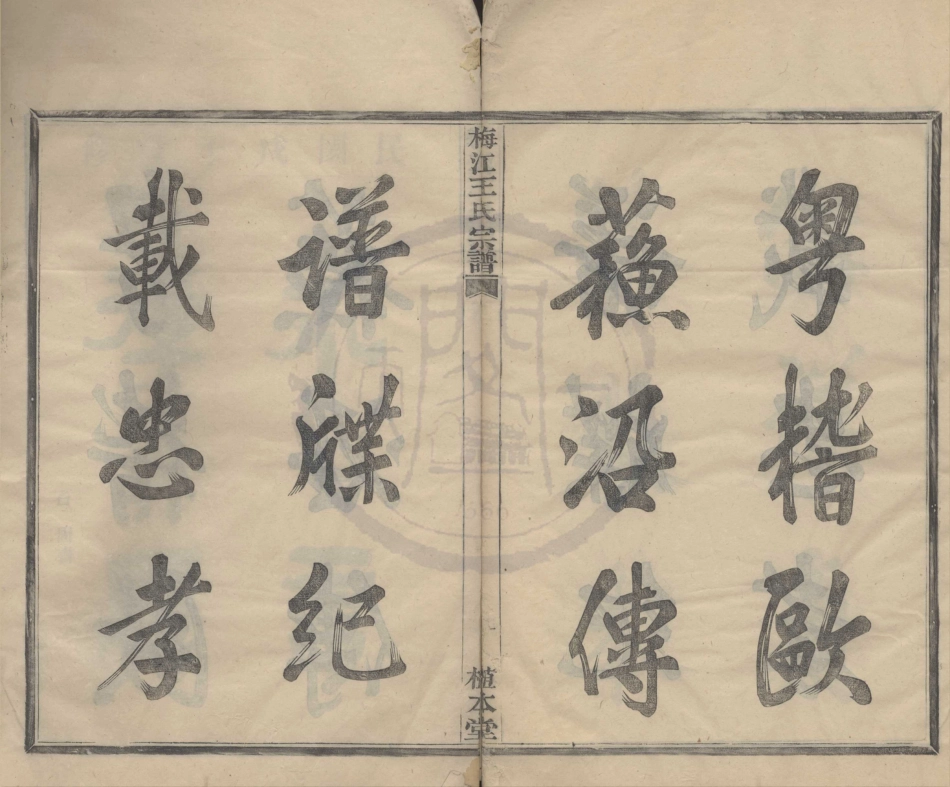 粵稽歐
蘓沿傳
梅江王氏宗譜
植本堂
譜牒纪
載忠孝